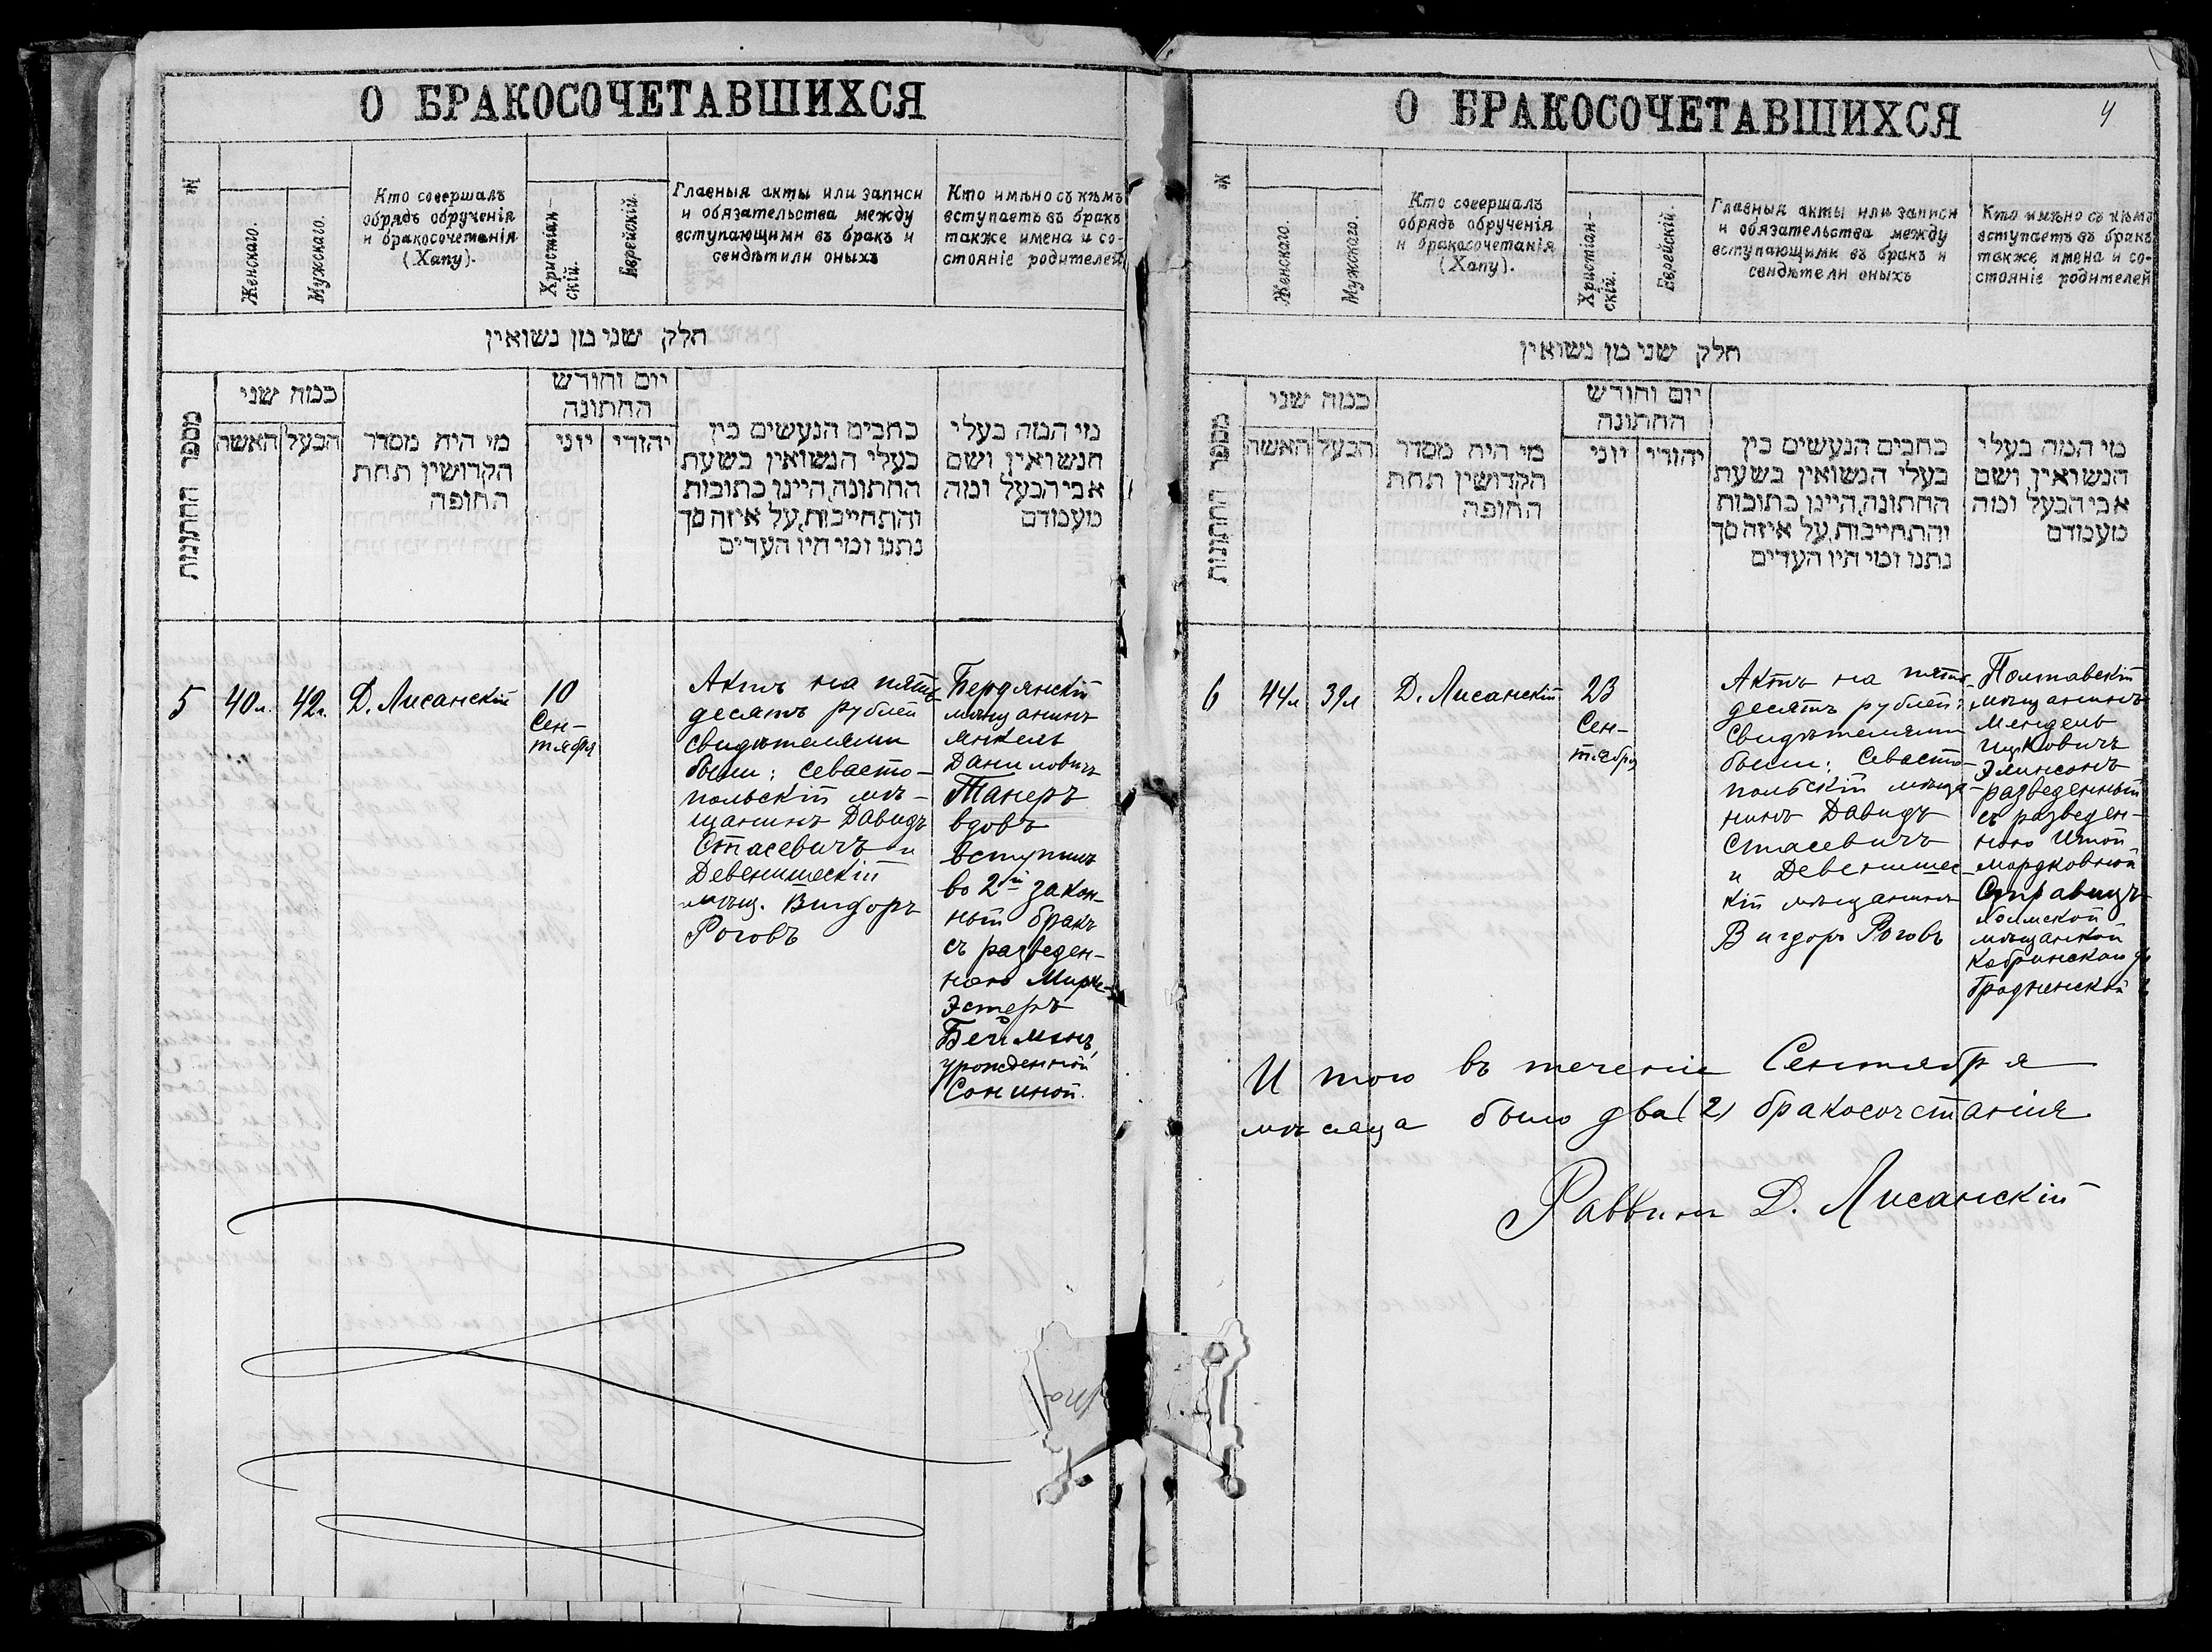 О БРАКОСОЧЕТАВШИХСЯ
№
Женскаго.
Мужскаго.
Кто совершалъ
обрядъ обрученія
и бракосочетанія
(Хапу).
Христіан-
скій.
Еврейскій.
Главныя акты или записи
и обязательства между
вступающими въ бракъ и
свидѣтили оныхъ
Кто имѣно съ кѣмъ
вступаетъ въ бракъ
также имена и со-
стояніе родителей
חלק שני מן נשואין
מספר החתונות
כמה שני
האשה
הבעל
מי היה מסדר
הקדושין תחת
החופה
יום וחודש
החתונה
יוני
יהודי
כתבים הנעשים בין
בעלי הנשואין בשעת
החתונה, היינו כתובות
והתחייבות, על איזה סך
נתנו ומי היו העדים
מי המה בעלי
הנשואין ושם
אבי הבעל ומה
מעמדם
5
40 л.
42 г.
Д. Лисанскій
10
Сен-
тября
Актъ на пять-
десятъ рублей
свидѣтелями
были: севасто-
польскій мѣ-
щанинъ Давидъ
Стасевичъ и
Девенишскій
мѣщ. Вигдоръ
Роговъ
Бердянскій
мѣщанинъ
Янкель
Даниловичъ
Танеръ
вдовъ
вступилъ
во 2й закон-
ный бракъ
съ разведен-
ною
Эстеръ
урожденной
Сониной.
О БРАКОСОЧЕТАВШИХСЯ
4
№
Женскаго.
Мужскаго.
Кто совершалъ
обрядъ обрученія
и бракосочетанія
(Хапу).
Христіан-
скій.
Еврейскій.
Главныя акты или записи
и обязательства между
вступающими въ бракъ и
свидѣтели оныхъ
Кто имѣно съ кѣмъ
вступаетъ въ бракъ
также имена и со-
стояніе родителей
חלק שני מן נשואין
מספר החתונות
כמה שני
האשה
הבעל
מי היה מסדר
הקדושין תחת
החופה
יום וחודש
החתונה
יוני
יהודי
כתבים הנעשים בין
בעלי הנשואין בשעת
החתונה, היינו כתובות
והתחייבות, על איזה סך
נתנו ומי היו העדים
מי המה בעלי
הנשואין ושם
אבי הבעל ומה
מעמדם
6
44 л
39 л
Д. Лисанскій
23
Сен-
тября
Актъ на пять-
десятъ рублей;
свидѣтелями
были: Севасто-
польскій мѣща-
нинъ Давидъ
Стасевичъ
и Девенишес-
кій мѣщанинъ
Вигдоръ Роговъ
Полтавскій
мѣщанинъ
Мендель
Ицковичъ
Элинсонъ
разведенный
съ разведен-
ною Итой
Мордковной
мѣщанкой
Кобринскаго у
Гродненской г
И того въ теченіе Сентября
мѣсяца было два (2) бракосочетанія
Раввинъ Д. Лисанскій